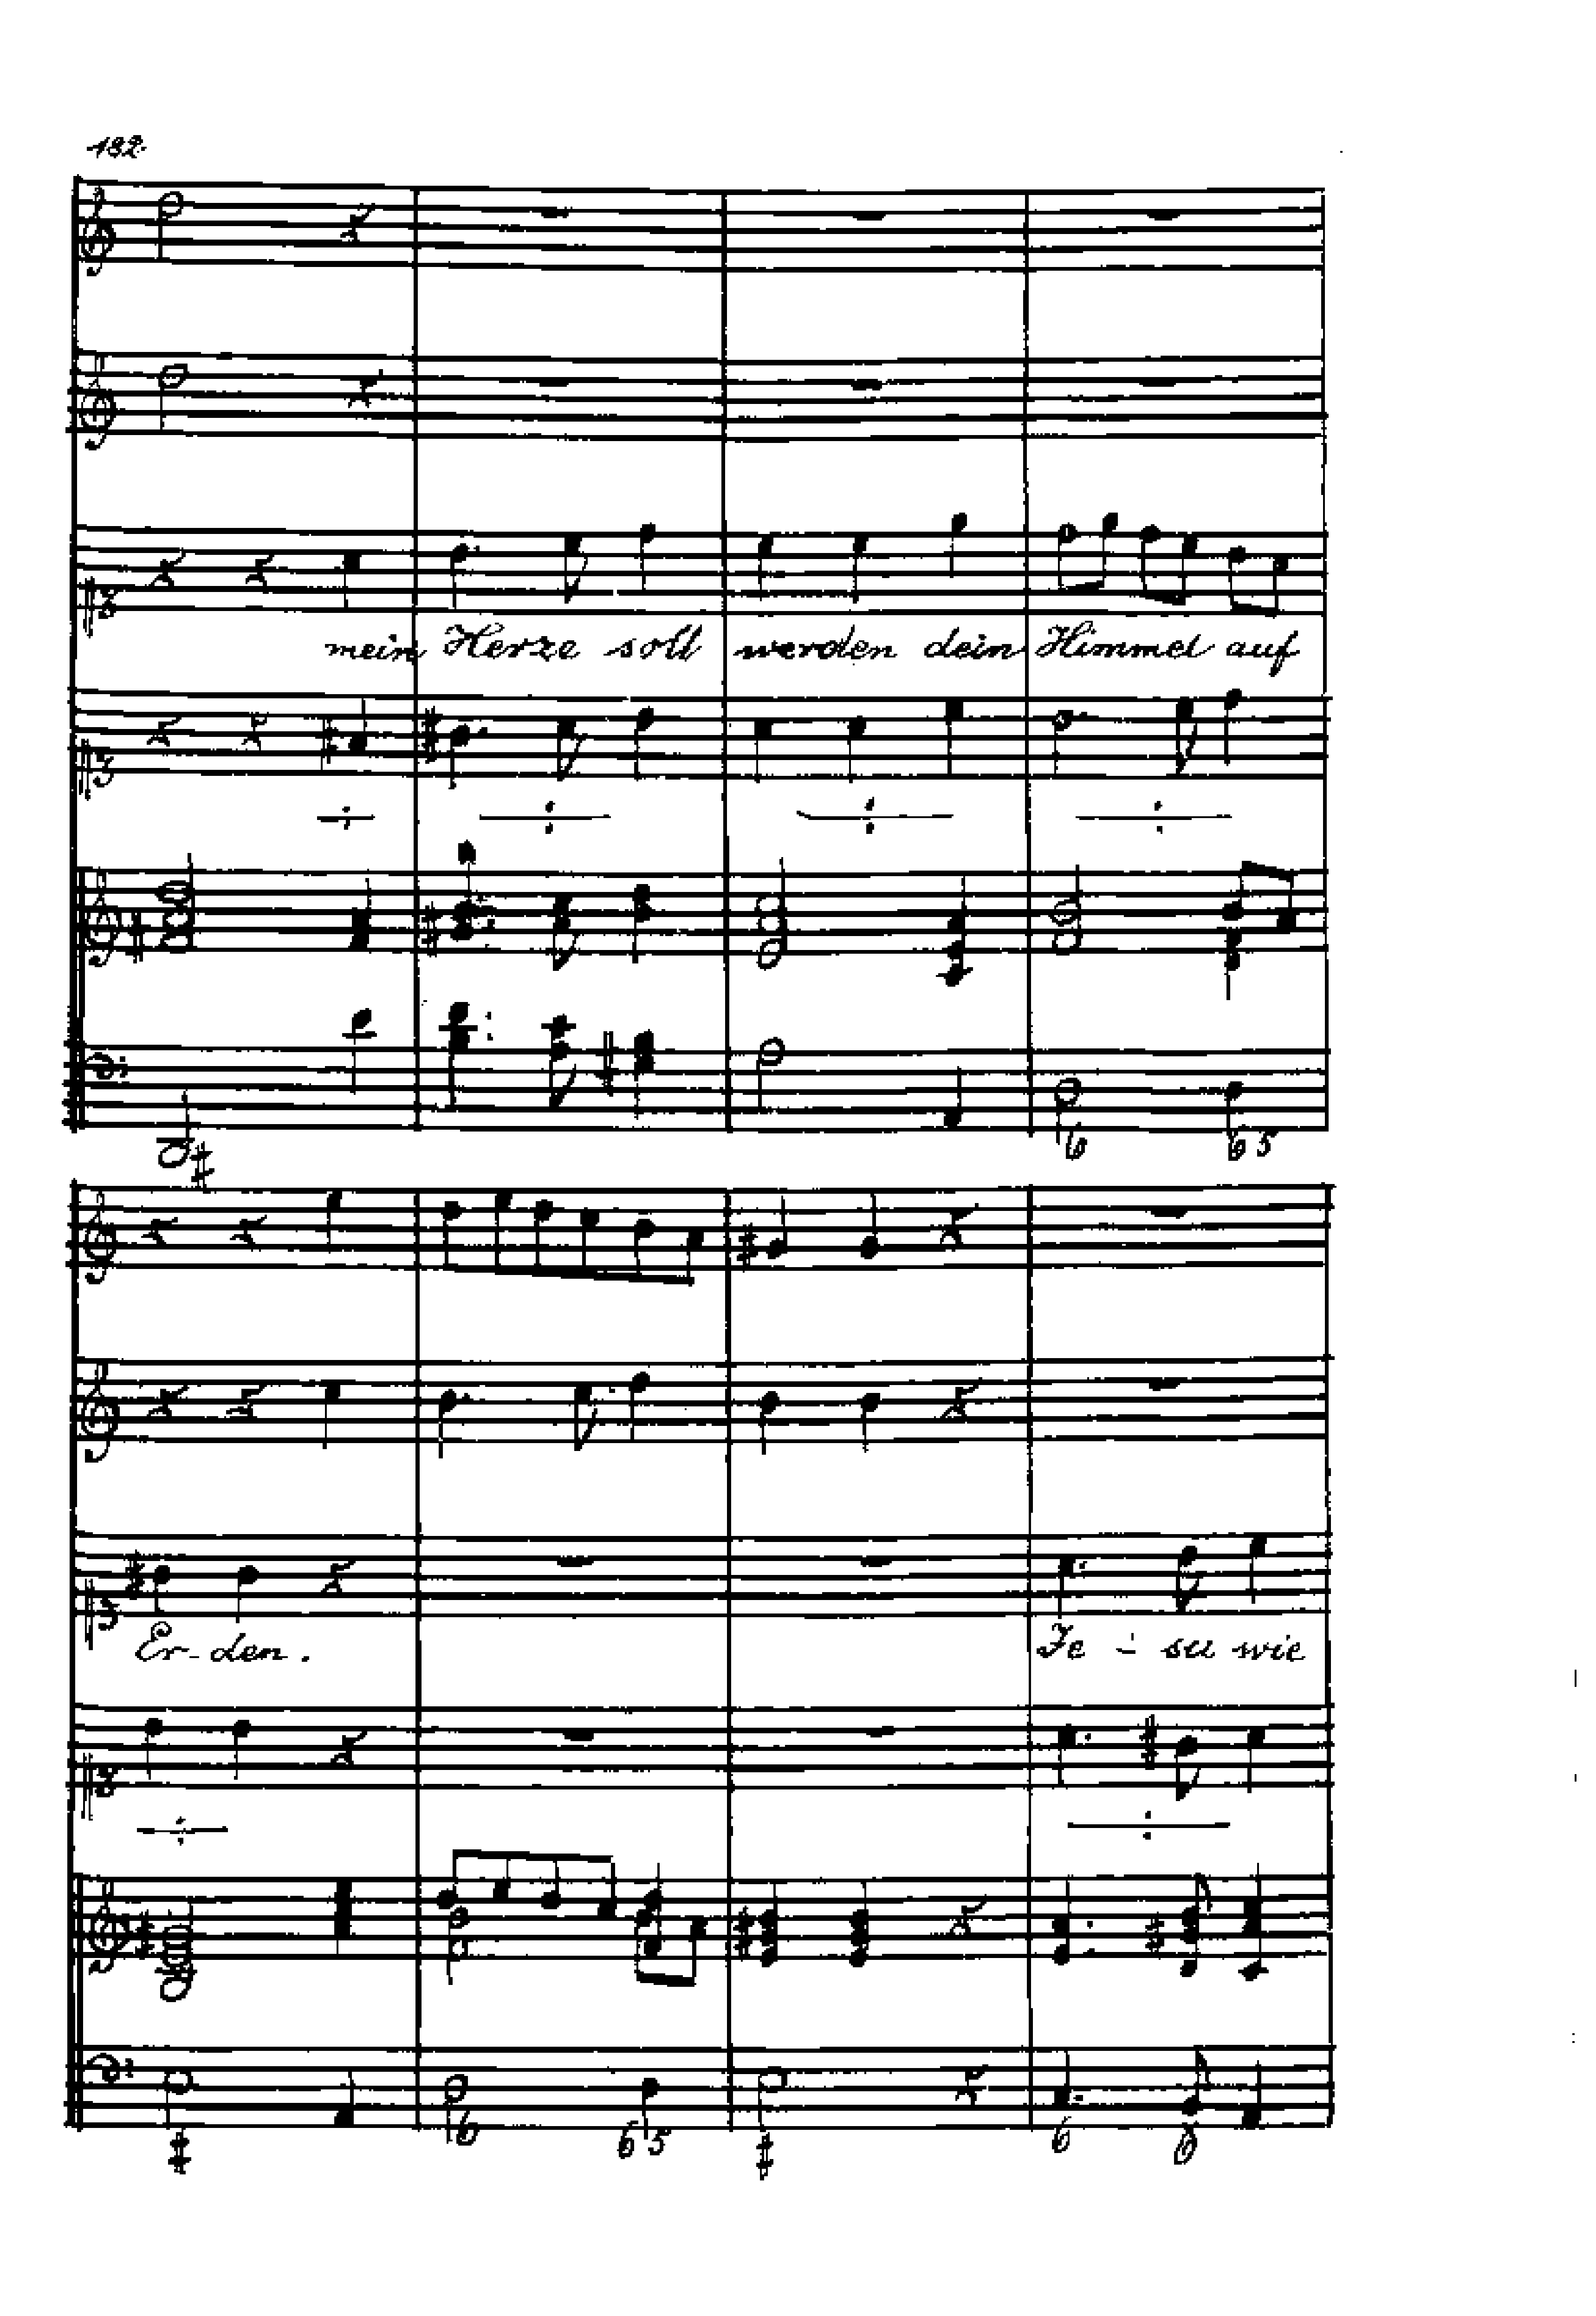 182.
mein Herze soll werden dein Himmel auf
6 6 5
Er-den. Je - su wie
6 6 5 6 6